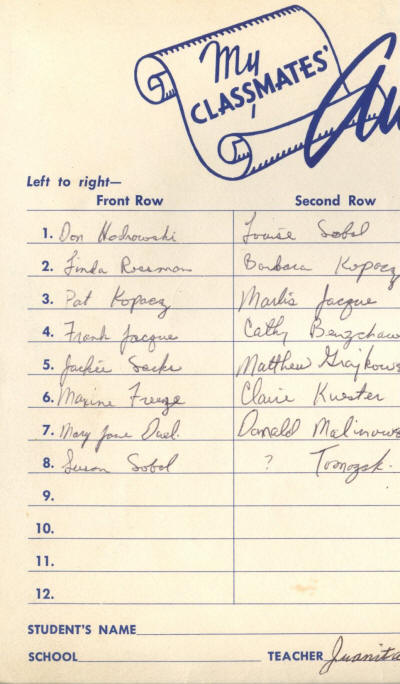 My
CLASSMATES'
Au
Left to right—
Front Row Second Row
1. Don Louise Sobol
2. Linda Rossman Barbara Kopacz
3. Pat Kopacz Marlis Jacque
4. Frank Jacque Cathy
5. Jackie Sacks Matthew
6. Maxine Freeze Claire Kuester
7. Mary Jane Duel. Donald
8. Susan Sobol ?
9.
10.
11.
12.
STUDENT'S NAME
SCHOOL TEACHER Juanita